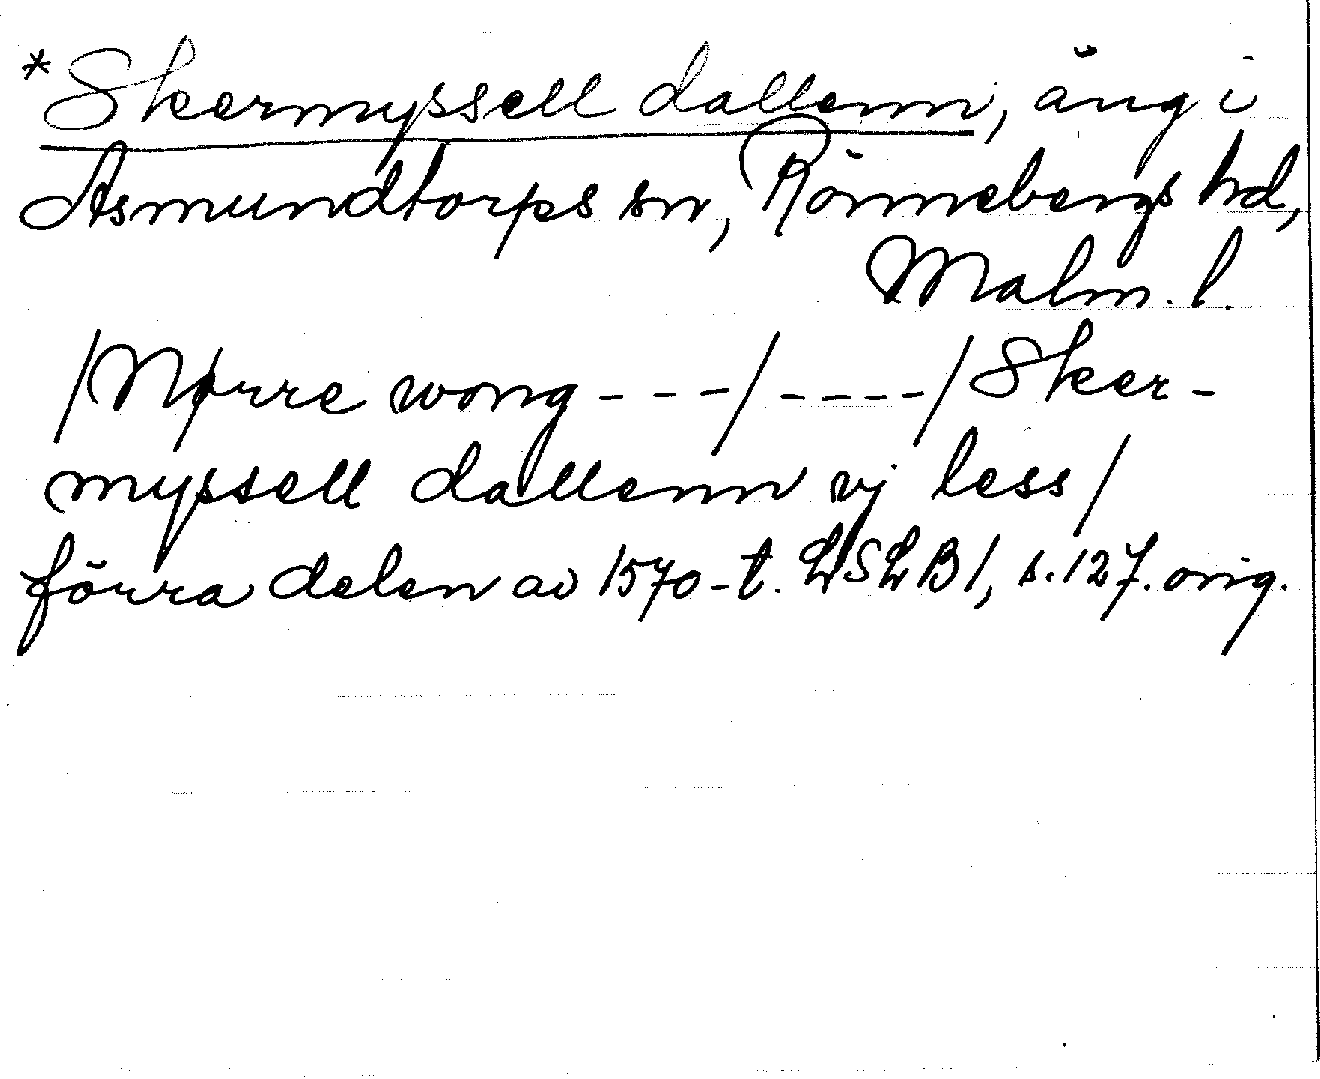 *Skermyssell dallenn, äng i
Asmundtorps sn, Rönnebergs hd,
Malm. l.
/Nørre wong - - - / - - - - / Sker-
myssell dallenn vj less /
förra delen av 1570-t. LSLB 1, s. 127. orig.